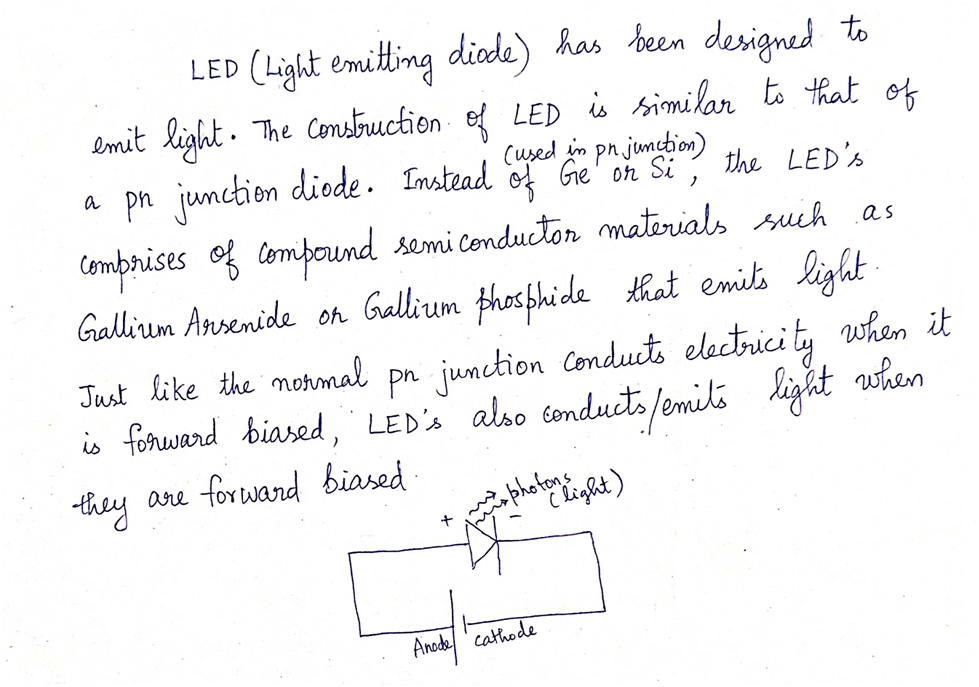 LED (Light emitting diode) has been designed to
emit light. The Construction of LED is similar to that of
(used in pn junction)
a pn junction diode. Instead of Ge or Si, the LED's
comprises of compound semiconductor materials such as
Gallium Arsenide or Gallium phosphide that emits light.
Just like the normal pn junction conducts electricity when it
is forward biased, LED's also conducts/emits light when
they are forward biased.
photons
(light)
+ -
Anode cathode